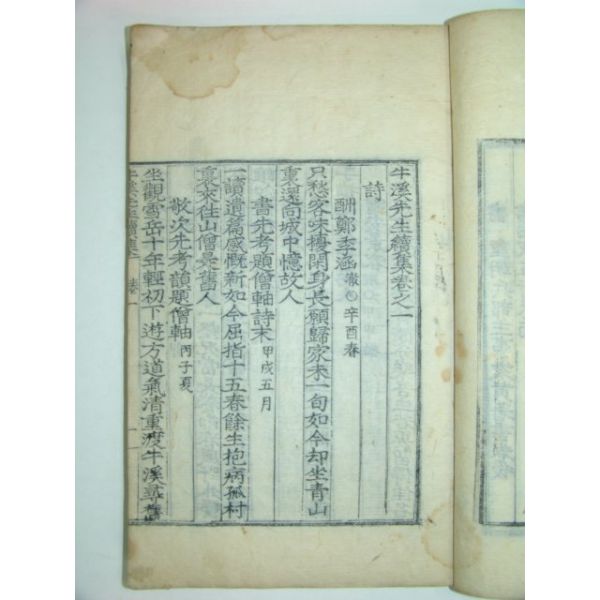 牛溪先生續集卷之一
詩
酬鄭季涵澈○辛酉春
只愁客味損閑身長願歸家未一旬如今却坐靑山
裏還向城中憶故人
書先考題僧軸詩末甲戌五月
一讀遺篇感慨新如今屈指十五春餘生抱病孤村
裏來往山僧是舊人
敬次先考韻題僧軸丙子夏
坐觀雪岳十年輕初下遊方道氣淸重渡牛溪尋舊
牛溪先生續集 卷一 一